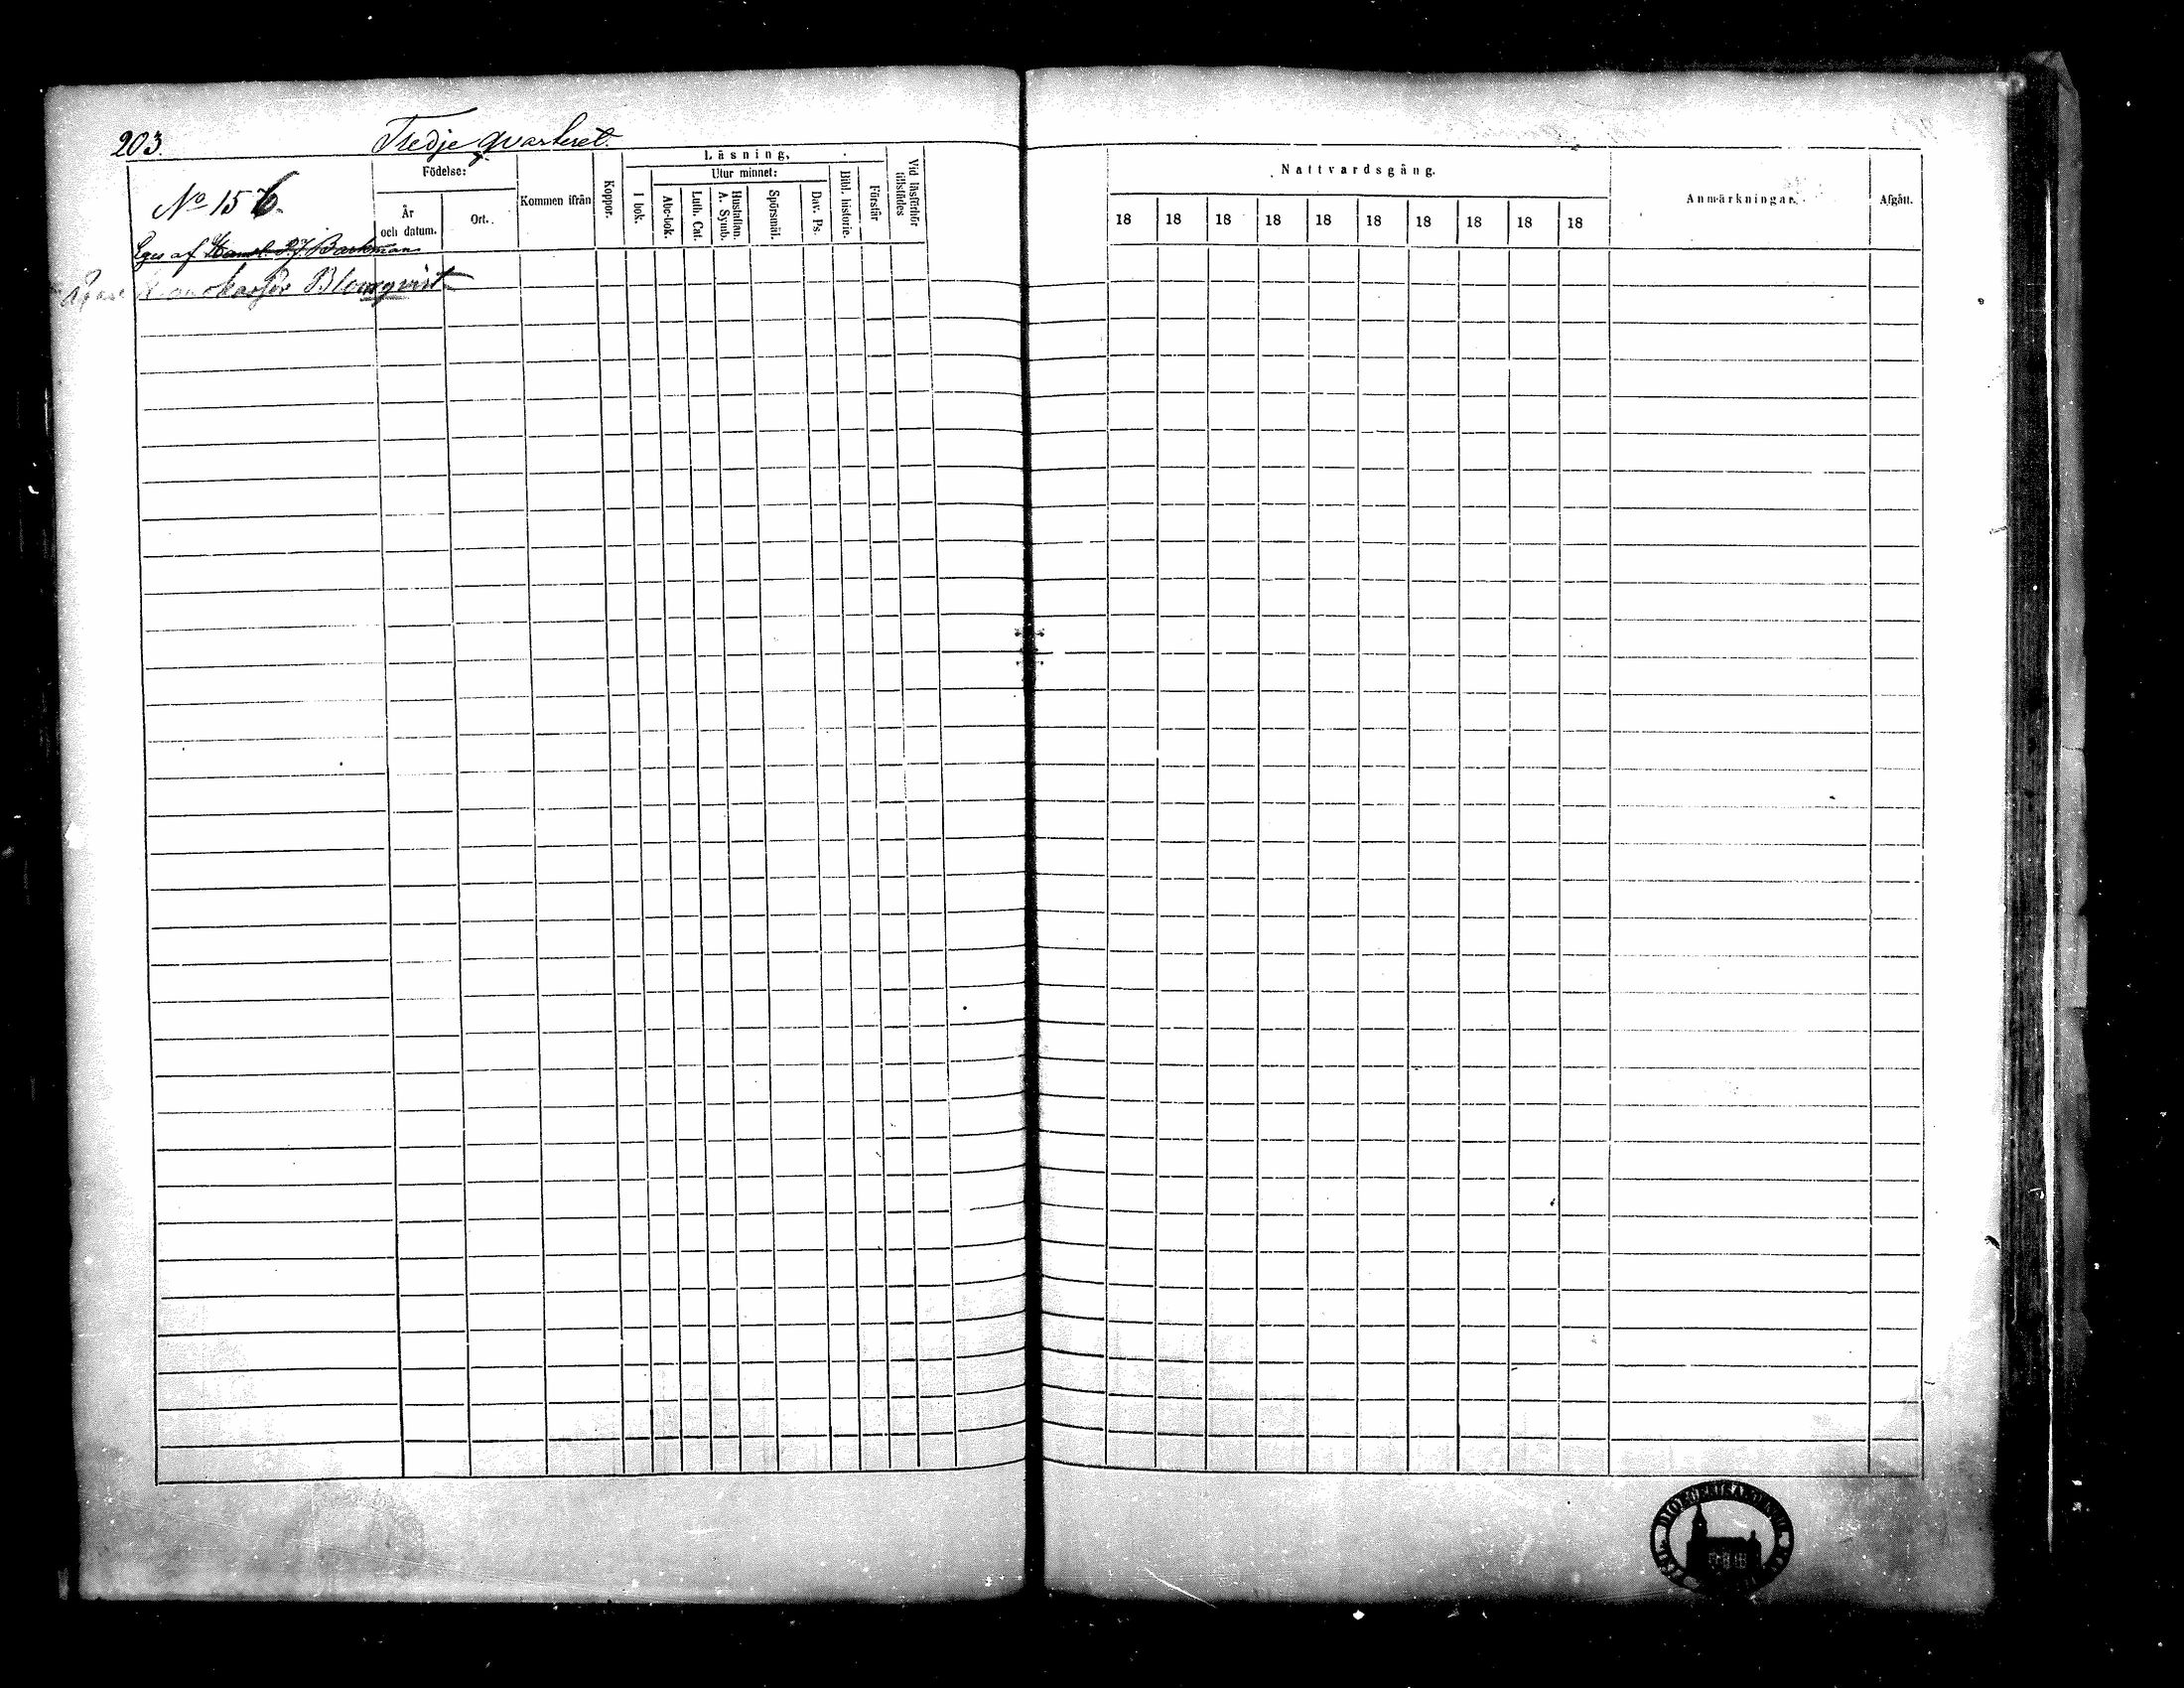 203.
Tredje qvarteret.
No 156.
Eges af Handl. P. J. Backman
Blomqvist
Födelse:
År och datum.
Ort.
Kommen ifrån
Koppor.
Läsning.
I bok.
Utur minnet:
Abc-bok.
Luth. Cat.
Hustaflan. A. Symb.
Spörsmål.
Dav. Ps.
Bibl. historie.
Förstår
Vid läsförhör tillstädes
Nattvardsgång.
18 18 18 18 18 18 18 18 18 18
Anmärkningar.
Afgått.